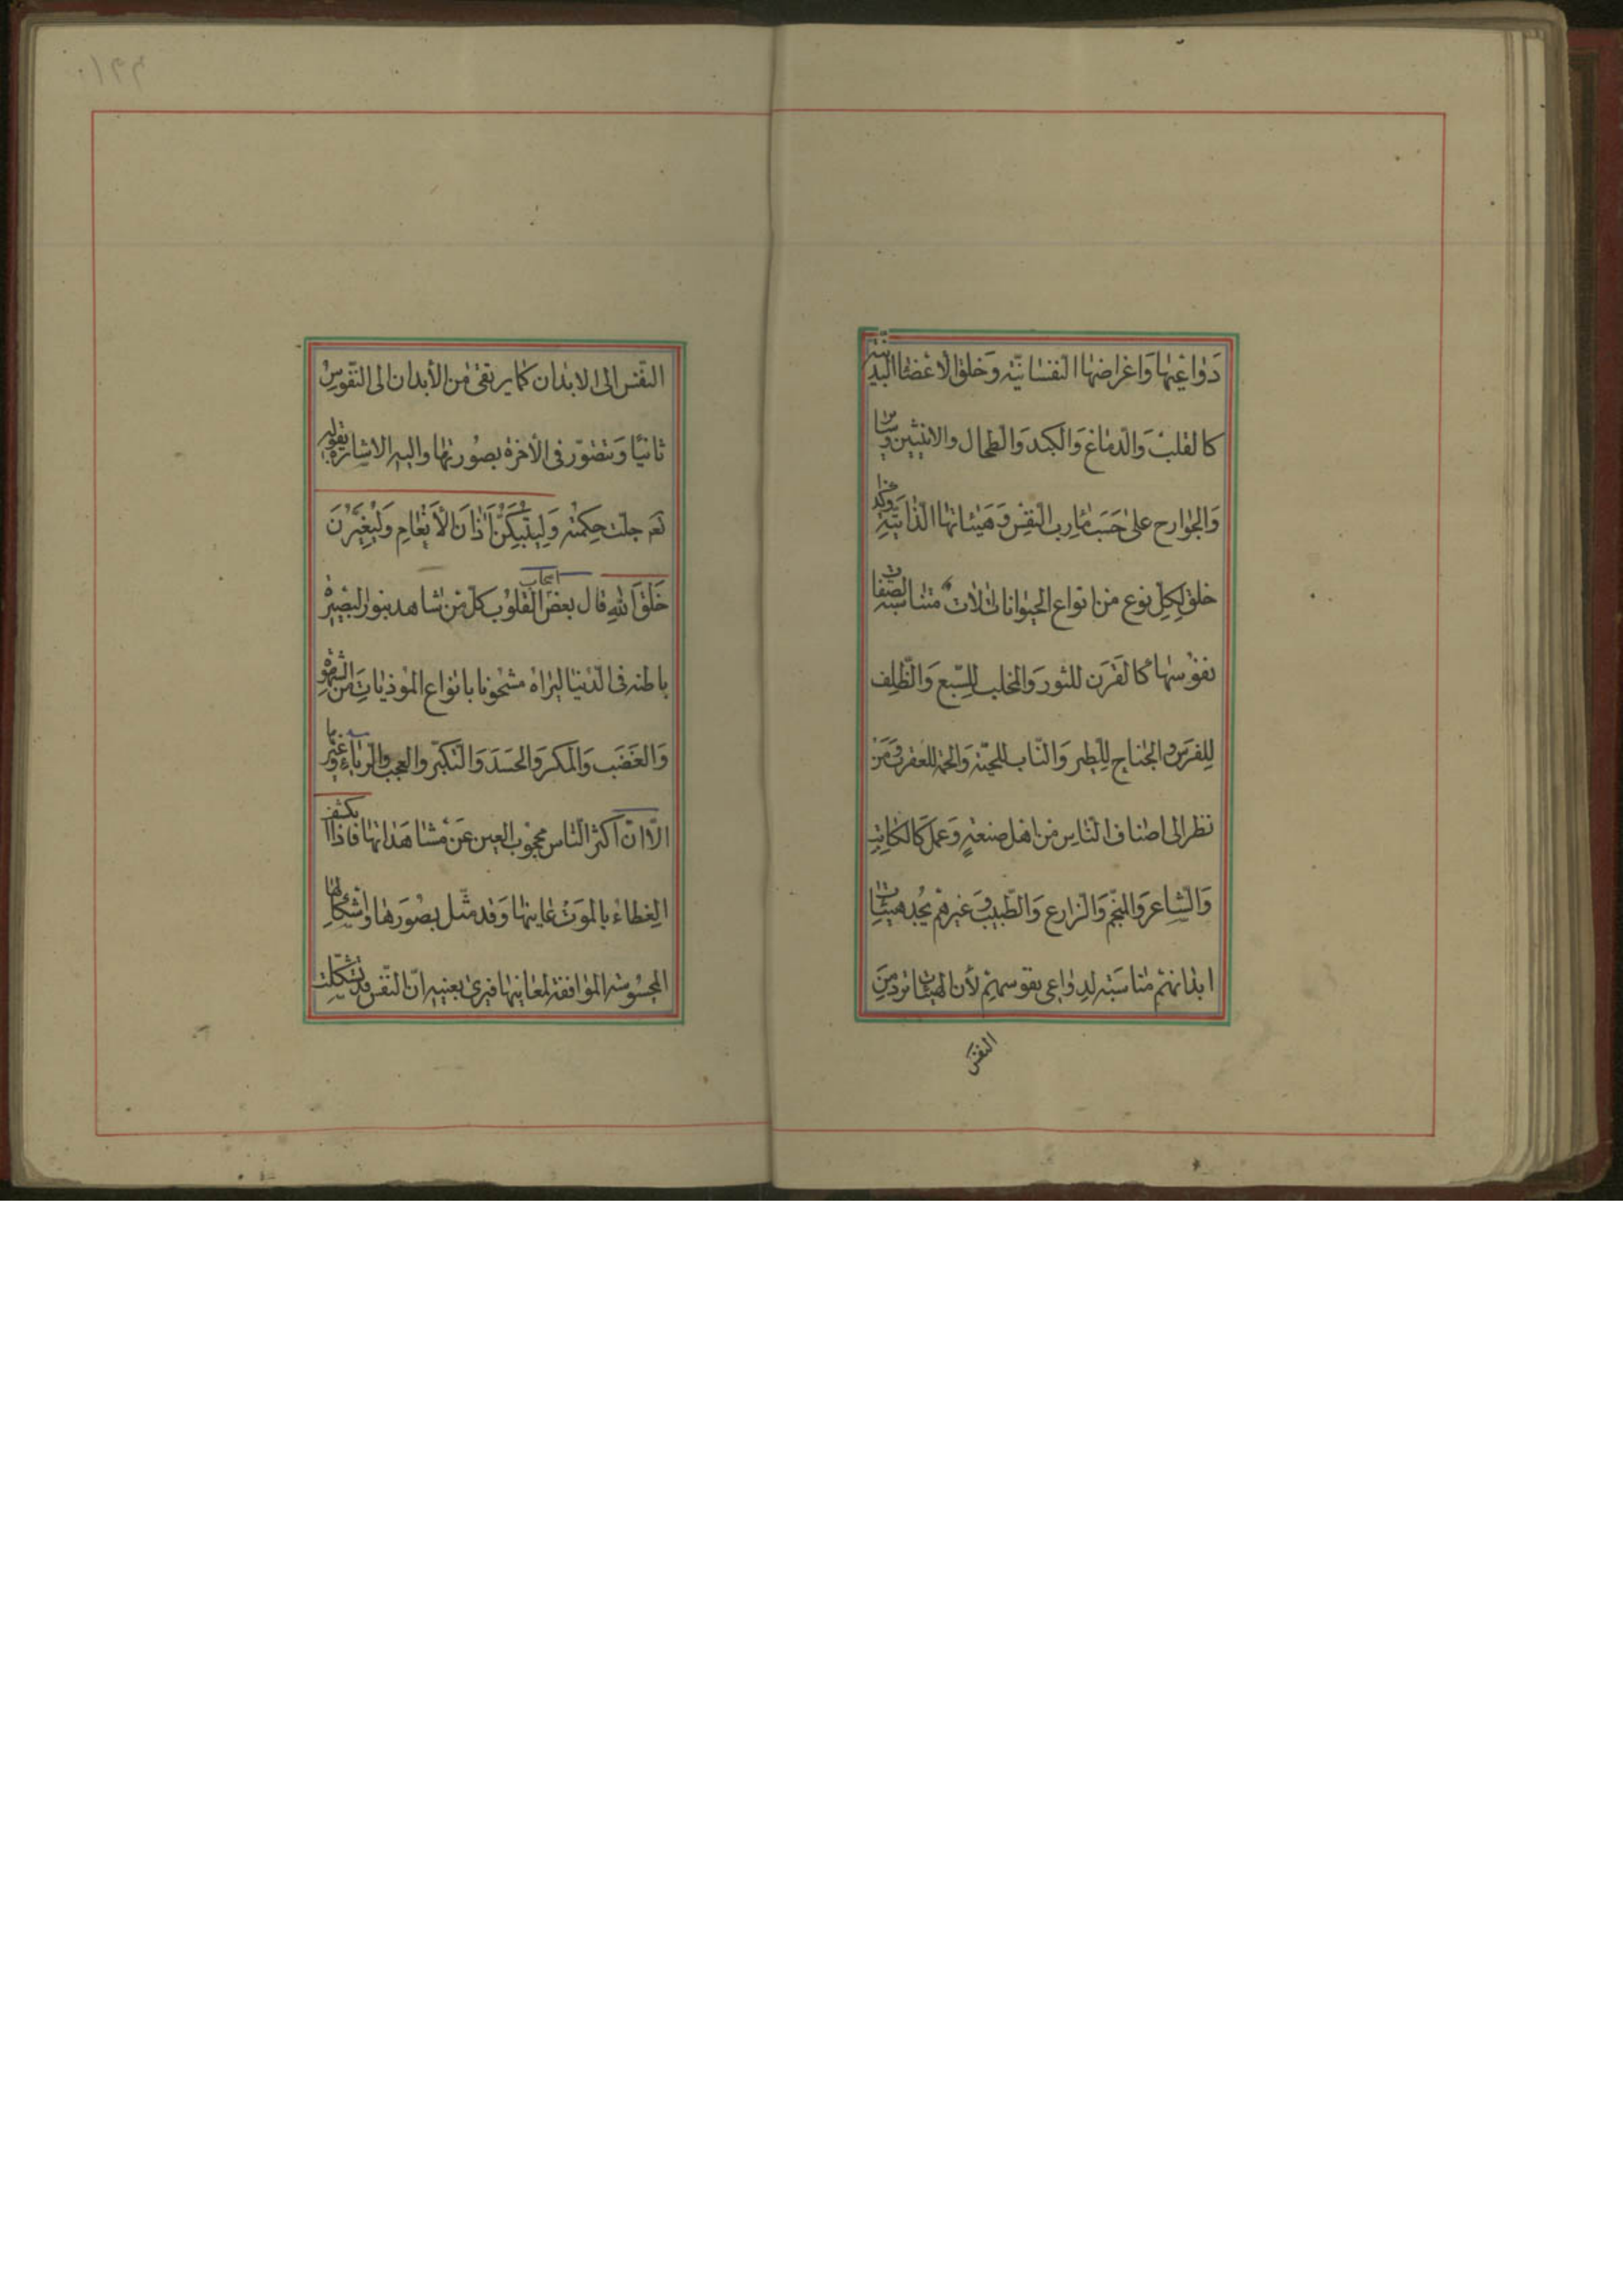 دواعيها واغراضها النفسانية وخلق الاعضا البدنية
كالقلب والدماغ والكبد والطحال والانثيين وساير
والجوارح على حسب مارب النفس وهيئاتها الذاتية وكذا
خلق لكل نوع من انواع الحيوانات الات متناسبة لصفات
نفوسها كالقرن للثور والمخلب للسبع والظلف
للفرس والجناح للطير والناب للحية والحمة للعقرب ومن
نظر الى اصناف الناس من اهل صنعة وعمل كالكاتب
والشاعر والمنجم والزارع والطبيب وغيرهم يجد هيئات
ابدانهم متناسبة لدواعى نفوسهم لأن الهيئات ترد من
النفس
النفس الى الابدان كما يرتقى من الأبدان الى النفوس
ثانيا وتتصور فى الأخرة بصورتها واليه الاشارة بقوله
تعم جلت حكمته وليبتكن أذان الأنعام وليغيرن
خلق الله قال بعض اصحاب القلوب كل من شاهد بنور البصيرة
باطنه فى الدنيا ليراه مشحونا بانواع الموذيات من الشهوة
والغضب والمكر والحسد والتكبر والعجب والرياء وغيرها
الا ان اكثر الناس محجوب العين عن مشاهداتها فاذا انكشف
الغطاء بالموت عاينها وقد مثل بصورها واشكالها
المحسوسة الموافقة لمعانيها فيرى بعينيه ان النفس قد تشكلت